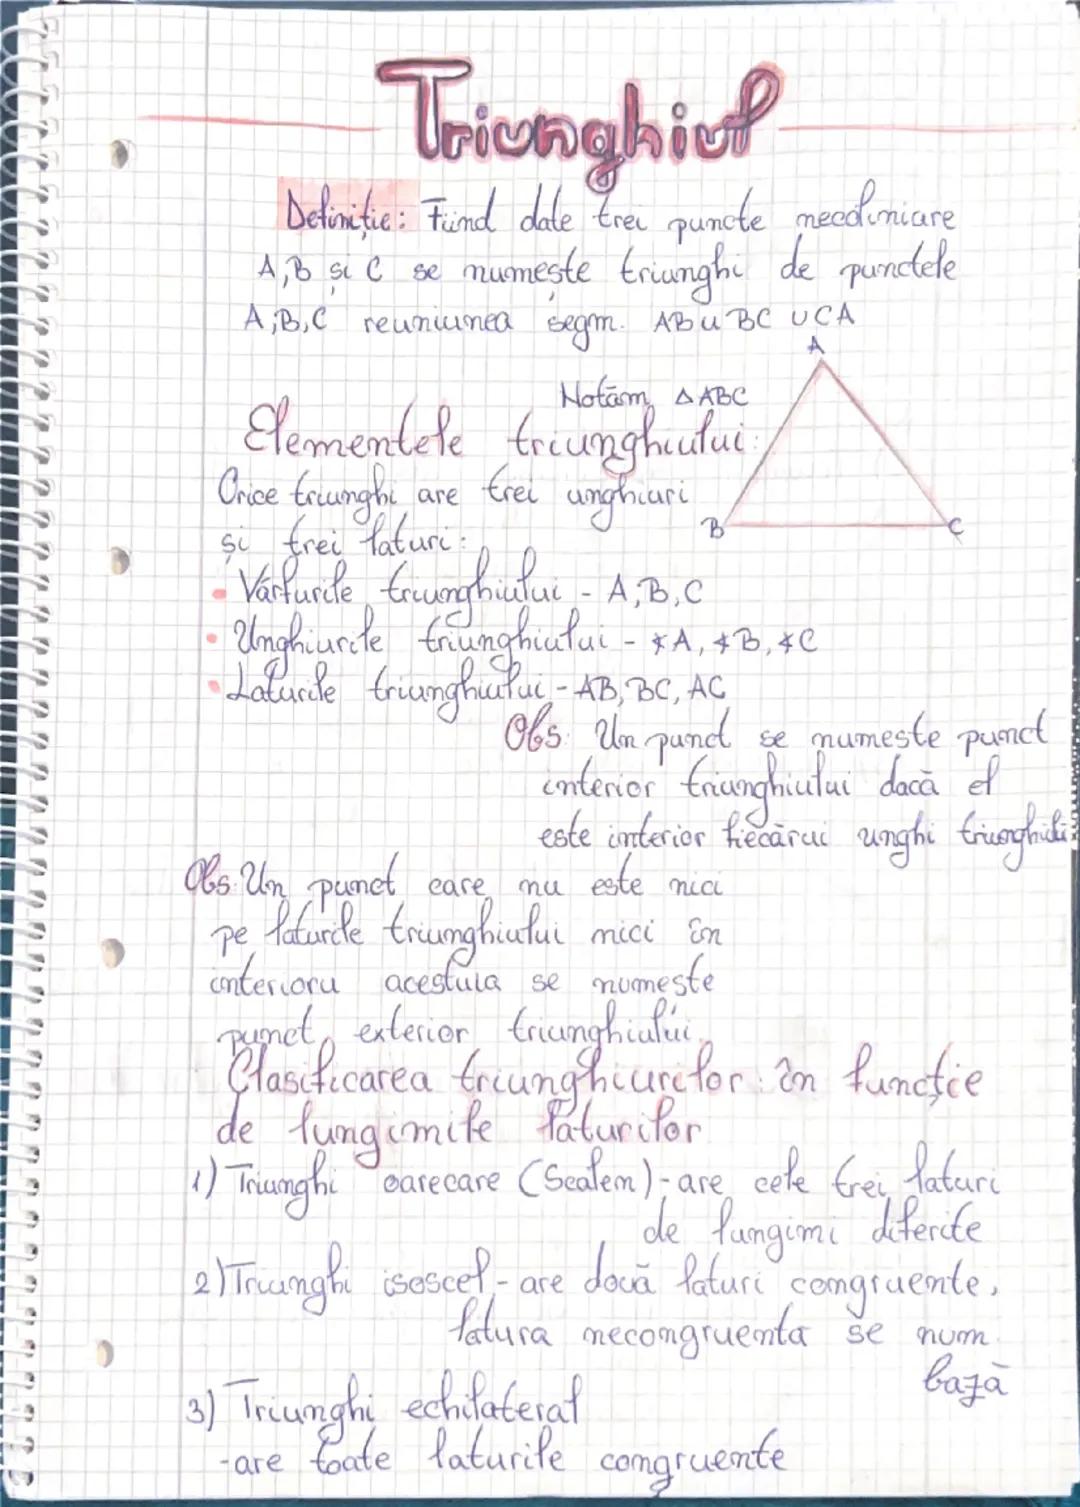 Triunghiul
Definiție: Fiind date trei puncte necoliniare
A,B și C se numește triunghi de punctele
A,B,C reuniunea segm. AB∪BC∪CA
A
Notăm △ABC
Elementele triunghiului:
Orice triunghi are trei unghiuri
B
C
și trei laturi:
• Vârfurile triunghiului - A,B,C
• Unghiurile triunghiului - ∢A, ∢B, ∢C
• Laturile triunghiului - AB, BC, AC
Obs: Un punct se numește punct
interior triunghiului dacă el
este interior fiecărui unghi triunghiului
Obs: Un punct care nu este nici
pe laturile triunghiului nici în
interioru acestuia se numește
punct exterior triunghiului.
Clasificarea triunghiurilor: în funcție
de lungimile laturilor
1) Triunghi oarecare (Scalen) - are cele trei laturi
de lungimi diferite
2) Triunghi isoscel - are două laturi congruente,
latura necongruenta se num.
bază
3) Triunghi echilateral
- are toate laturile congruente